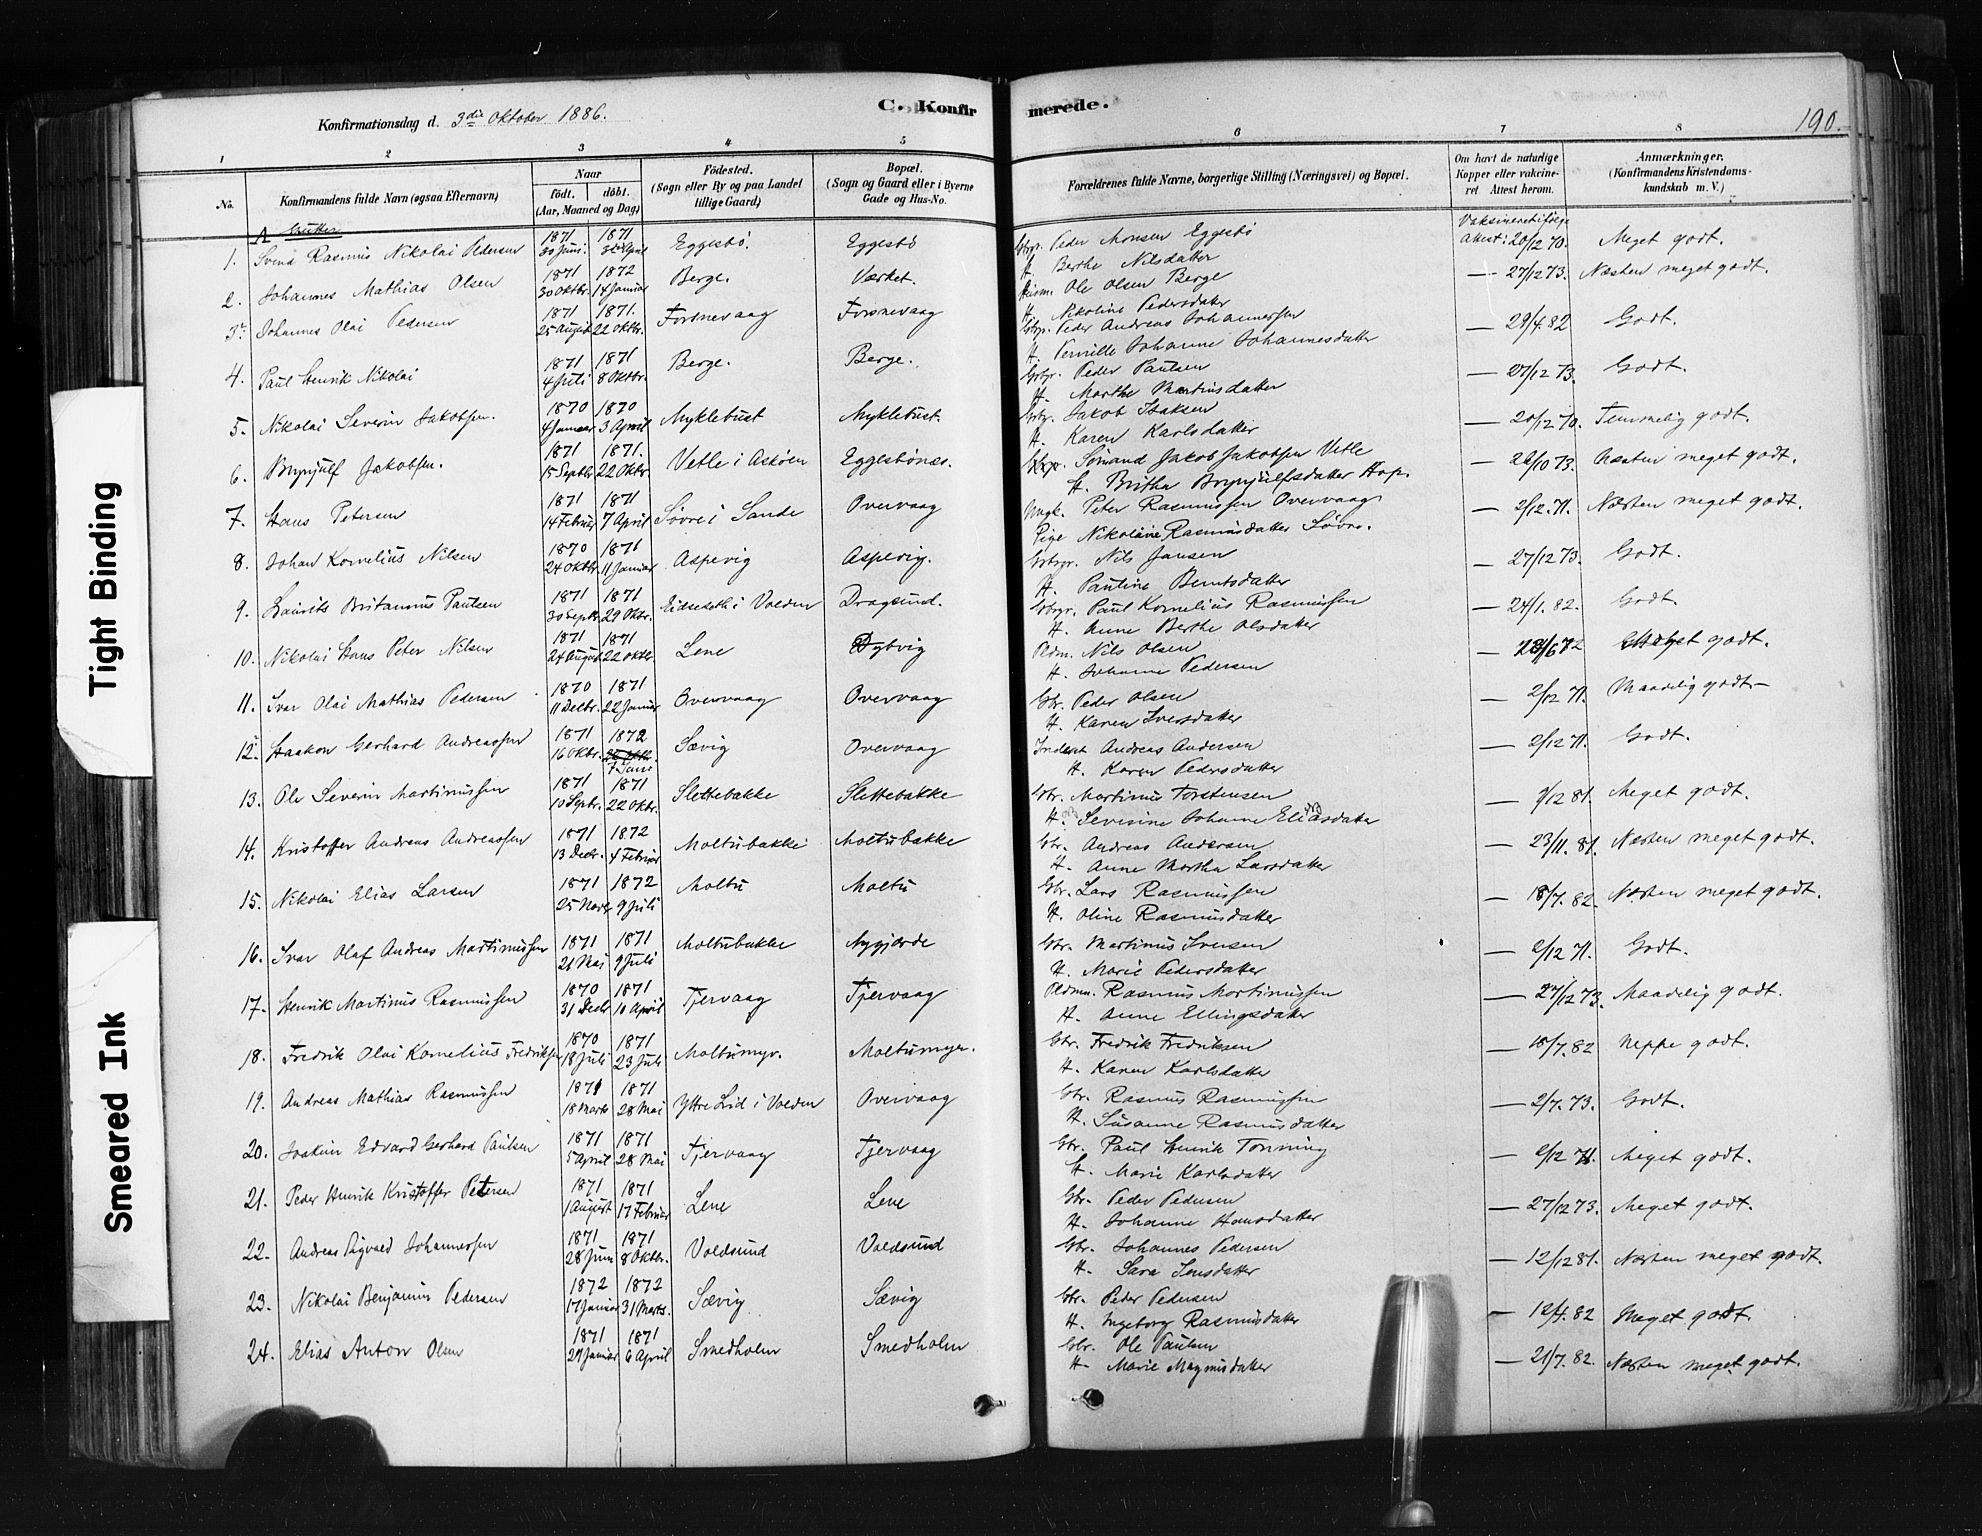 C. Konfirmerede.
190.
Konfirmationsdag d. 3die Oktober 1886.
1 2 3 4 5 6 7 8
No.
Konfirmandens fulde Navn (ogsaa Efternavn)
Naar
født. døbt.
(Aar, Maaned og Dag)
Fødested.
(Sogn eller By og paa Landet
tillige Gaard)
Bopæl.
(Sogn og Gaard eller i Byerne
Gade og Hus-No.
Forældrenes fulde Navne, borgerlige Stilling (Næringsvei) og Bopæl.
Om havt de naturlige
Kopper eller vakcine-
ret Attest herom.
Anmærkninger.
(Konfirmandens Kristendoms-
kundskab m. V.)
A Gutter
Vaksineret ifølge
1. Svend Rasmus Nikolai Pedersen 1871 30 Juni 1871 Eggesbø. Eggesbø Gbr. Peder Monsen Eggesbø attest: 20/12 70. Meget godt.
H. Berthe Nilsdatter
2. Johannes Mathias Olsen 1871 30 Oktbr. 1872 14 Januar Berge. Værket. Husm. Ole Olsen Berge — 27/12 73. Næsten meget godt.
H. Nikoline Pedersdatter
3. Johannes Olai Pedersen 1871 25 August 1871. 22 Oktbr. Torsnevaag Torsnevaag Gbr. Peder Andreas Johannessen — 29/4. 82 Godt.
H. Pernille Johanne Johannesdatter
4. Paul Henrik Nikolai 1871 4 Juli 1871 8 Oktbr. Berge. Berge. Gbr. Peder Paulsen — 27/12 73. Godt.
H. Marthe Martinusdatter
5. Nikolai Severin Jakobsen. 1870 4 Januar 1870 3 April Myklebust Myklebust. Gbr. Jakob Isaksen — 20/12 70. Temmelig godt.
H. Karen Karlsdatter
6. Brynjulf Jakobsen. 1871 15 Septbr 1871. 22 Oktbr. Vetle i Askøen Eggesbønæs. Sømand Jakob Jakobsen Vetle — 26/10 73. Næsten meget godt.
H. Britha Brynjulfsdatter Hop.
7. Hans Petersen 1871 14 Februar 1871 7 April Søvre i Sande Overvaag Ungk. Peter Rasmussen Overvaag — 2/12. 71. Næsten meget godt.
Pige Nikolaine Rasmusdatter Søvre.
8. Johan Kornelius Nilsen 1870 24 Oktbr. 1871 11 Januar Aspevig Aspevig. Gbr. Nils Jansen — 27/12 73. Godt.
H. Pauline Berntsdatter
9. Laurits Britanius Paulsen 1871 30 Septbr 1871 29 Oktbr. Eidsedeth i Volden Dragsund. Gbr. Paul Kornelius Rasmussen — 24/1. 82. Godt.
H. Anne Berthe Olsdatter
10. Nikolai Hans Peter Nilsen 1871 24 August 1871 22 Oktbr. Lene Dybvig Pldm. Nils Olsen — 28/6 72 Meget godt.
H. Johanne Pedersen
11. Ivar Olai Mathias Pedersen 1870 11 Decbr. 1871 22 Januar Overvaag Overvaag Gbr. Peder Olsen — 2/12 71. Maadelig godt.
H. Karen Iversdatter
12. Haakon Gerhard Andreassen 1871 16 Oktbr. 1872 7 Janr Sævig Overvaag Inderst Andreas Andersen — 2/12 71. Godt.
H. Karen Pedersdatter
13. Ole Severin Martinussen 1871 10 Septbr. 1871 22 Oktbr. Slettebakke Slettebakke Gbr. Martinus Torstensen — 1/12 81. Meget godt.
H. Severine Johanne Eliasdatter
14. Kristoffer Andreas Andreassen 1871 13 Decbr. 1872 4 Februar Moltubakke Moltubakke Gbr. Andreas Andersen — 23/11. 81. Næsten meget godt.
H. Anne Martha Larsdatter
15. Nikolai Elias Larsen 1871 25 Novbr 1872 9 Juli Moltu Moltu Gbr. Lars Rasmussen — 18/7. 82. Næsten meget godt.
H. Oline Rasmusdatter
16. Ivar Olaf Andreas Martinussen 1871 21 Mai 1871 9 Juli Moltubakke Nygjærde Gbr. Martinus Iversen — 2/12 71. Godt.
H. Marie Pedersdatter
17. Henrik Martinus Rasmussen 1870 31 Decbr 1871 10 April Tjervaag Tjervaag Pldmn. Rasmus Martinussen — 27/12 73. Maadelig godt.
H. Anne Ellingsdatter
18. Fredrik Olai Kornelius Fredriksen 1870 18 Juli 1871 23 Juli Moltumyr. Moltumyr. Gbr. Fredrik Fredriksen — 18/7. 82 Neppe godt.
H. Karen Karlsdatter
19. Andreas Mathias Rasmussen 1871 18 Marts 1871 28 Mai Yttre Lid i Volden Overvaag Gbr. Rasmus Rasmussen — 2/7. 73. Godt.
H. Susanne Rasmusdatter
20. Joakim Edvard Gerhard Paulsen 1871 5 April 1871 28 Mai Tjervaag Tjervaag Gbr. Paul Henrik Tonning — 2/12 71. Meget godt.
H. Marie Karlsdatter
21. Peder Henrik Kristoffer Petersen 1871 1 August 1871 17 Februar Lene Lene Gbr. Peder Pedersen — 27/12 73. Meget godt.
H. Johanne Hansdatter
22. Andreas Sigvald Johannessen 1871 28 Juni 1871 8 Oktbr. Voldsund Voldsund Gbr. Johannes Pedersen — 12/12 81. Næsten meget godt.
H. Sara Jensdatter
23. Nikolai Benjamin Pedersen 1872 17 Januar 1872 31 Marts. Sævig Sævig Gbr. Peder Pedersen — 12/4. 82 Meget godt.
H. Ingeborg Rasmusdatter
24. Elias Anton Olsen 1871 27 Januar 1871 6 April Smedholm Smedholm Gbr. Ole Paulsen — 21/7. 82. Næsten meget godt.
H. Marie Magnusdatter
Tight Binding
Smeared Ink